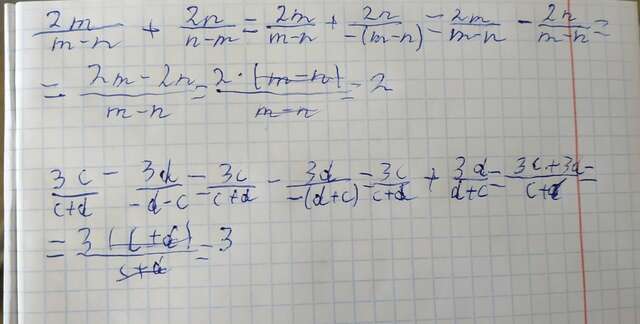 2m/(m-n) + 2n/(n-m) = 2m/(m-n) + 2n/(-(m-n)) = 2m/(m-n) - 2n/(m-n) =
= (2m-2n)/(m-n) = 2·(m-n)/(m-n) = 2
3c/(c+d) - 3d/(-d-c) = 3c/(c+d) - 3d/(-(d+c)) = 3c/(c+d) + 3d/(d+c) = (3c+3d)/(c+d) =
= 3(c+d)/(c+d) = 3